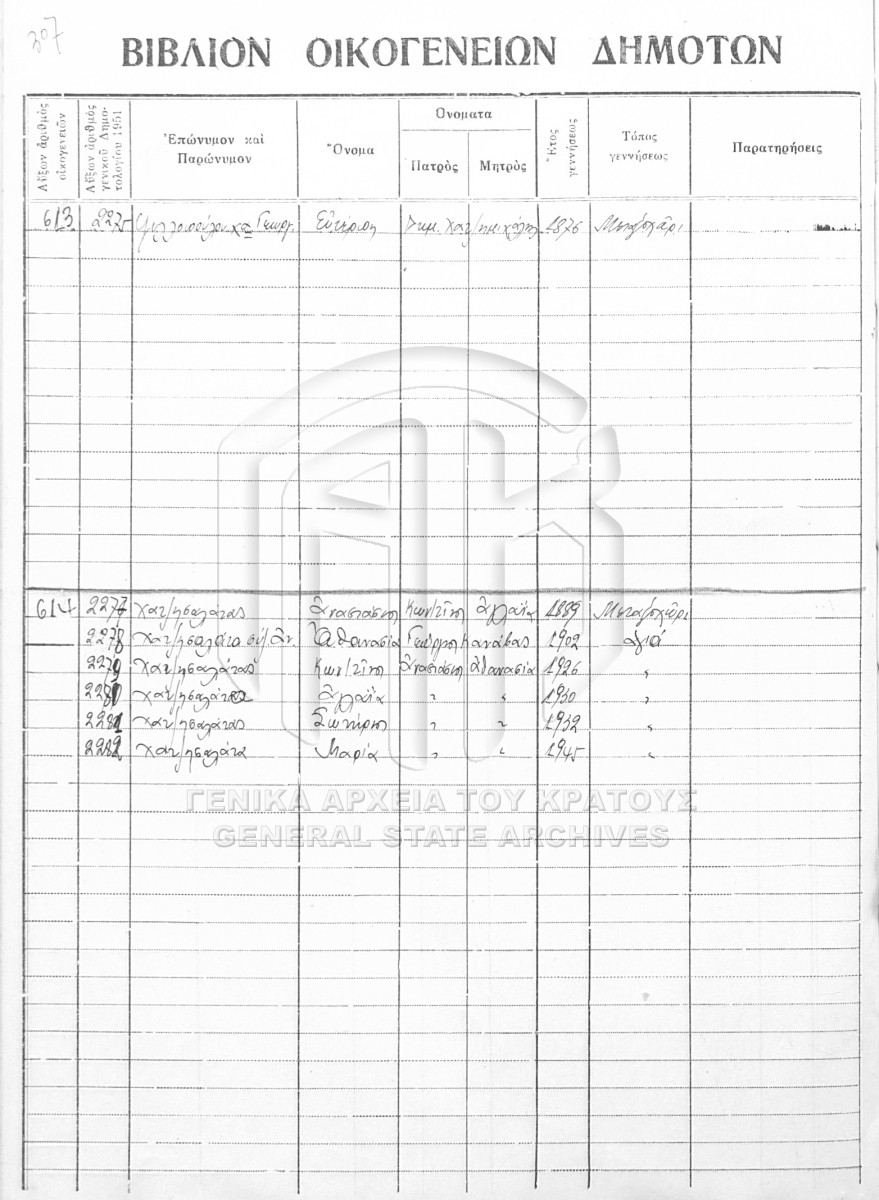 307
ΒΙΒΛΙΟΝ ΟΙΚΟΓΕΝΕΙΩΝ ΔΗΜΟΤΩΝ
Αὔξων ἀριθμὸς οἰκογενειῶν
Αὔξων ἀριθμὸς γενικοῦ Δημοτολογίου 1951
Ἐπώνυμον καὶ Παρώνυμον
Ὄνομα
Ὀνόματα
Πατρὸς
Μητρὸς
Ἔτος γεννήσεως
Τόπος γεννήσεως
Παρατηρήσεις
613 2275 Γεωργ. Εὐτέρπη Δημ. Χατζημιχάλη 1876 Μεταξοχῶρι
614 2277 Χατζησαλάτας Ἀναστάσης Κων/τίνη Ἀγλαΐα 1889 Μεταξοχῶρι
2278 Χατζησαλάτα σύζ. Ἀν. Ἀθανασία Γεώργιος Κανάβας 1902 Ἁγιά
2279 Χατζησαλάτας Κων/τῖνη Ἀναστάση Ἀθανασία 1926 "
2280 Ἀγλαΐα " " 1930 "
2281 Χατζησαλάτας Σωτήρη " " 1932 "
2282 Χατζησαλάτα Μαρία " " 1945 "
ΓΕΝΙΚΑ ΑΡΧΕΙΑ ΤΟΥ ΚΡΑΤΟΥΣ
GENERAL STATE ARCHIVES